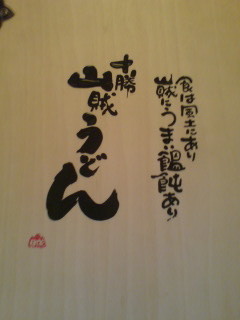 食は風土にあり
山賊にうまい饂飩あり
十勝
山賊うどん